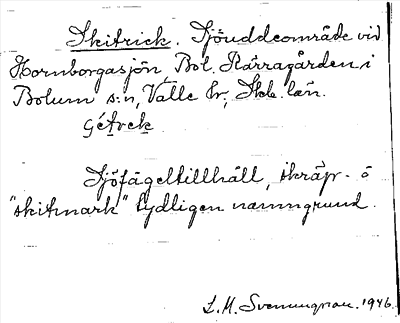 Skitrick. Sjöuddeområde vid
Hornborgasjön, Bol. Rärragården, i
Bolum s:n, Valle hr, Skb. län.
Sjöfågeltillhåll, skräp- o
"skitmark" tydligen namngrund.
L. M. Svenungsson. 1946.